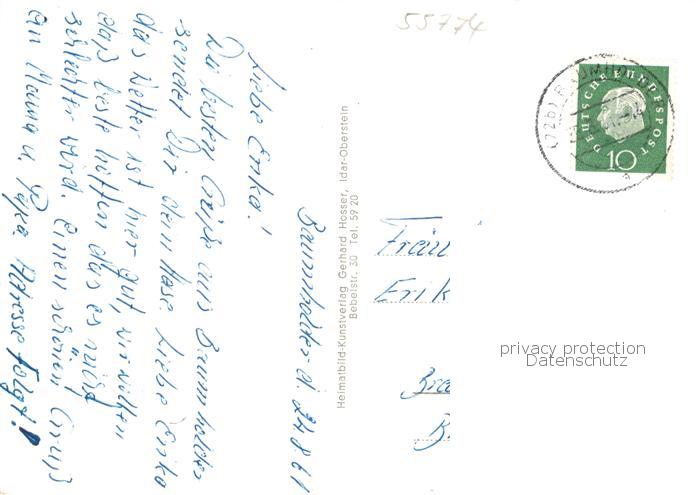 55774
Baumholder d. 24.8.61
Liebe Erika!
Die besten Grüße aus Baumholder
sendet Dir dein Hase. Liebe Erika
das Wetter ist hier gut, wir wollen
daß beste hoffen das es nicht
schlechter wird. Einen schönen Gruß
an Mama u. Papa. Adresse folgt!
Heimatbild-Kunstverlag Gerhard Hosser, Idar-Oberstein
Bebelstr. 30 Tel. 59 20
DEUTSCHE BUNDESPOST
10
(22b) BAUMHO
Fräu
Erik
privacy protection
Datenschutz